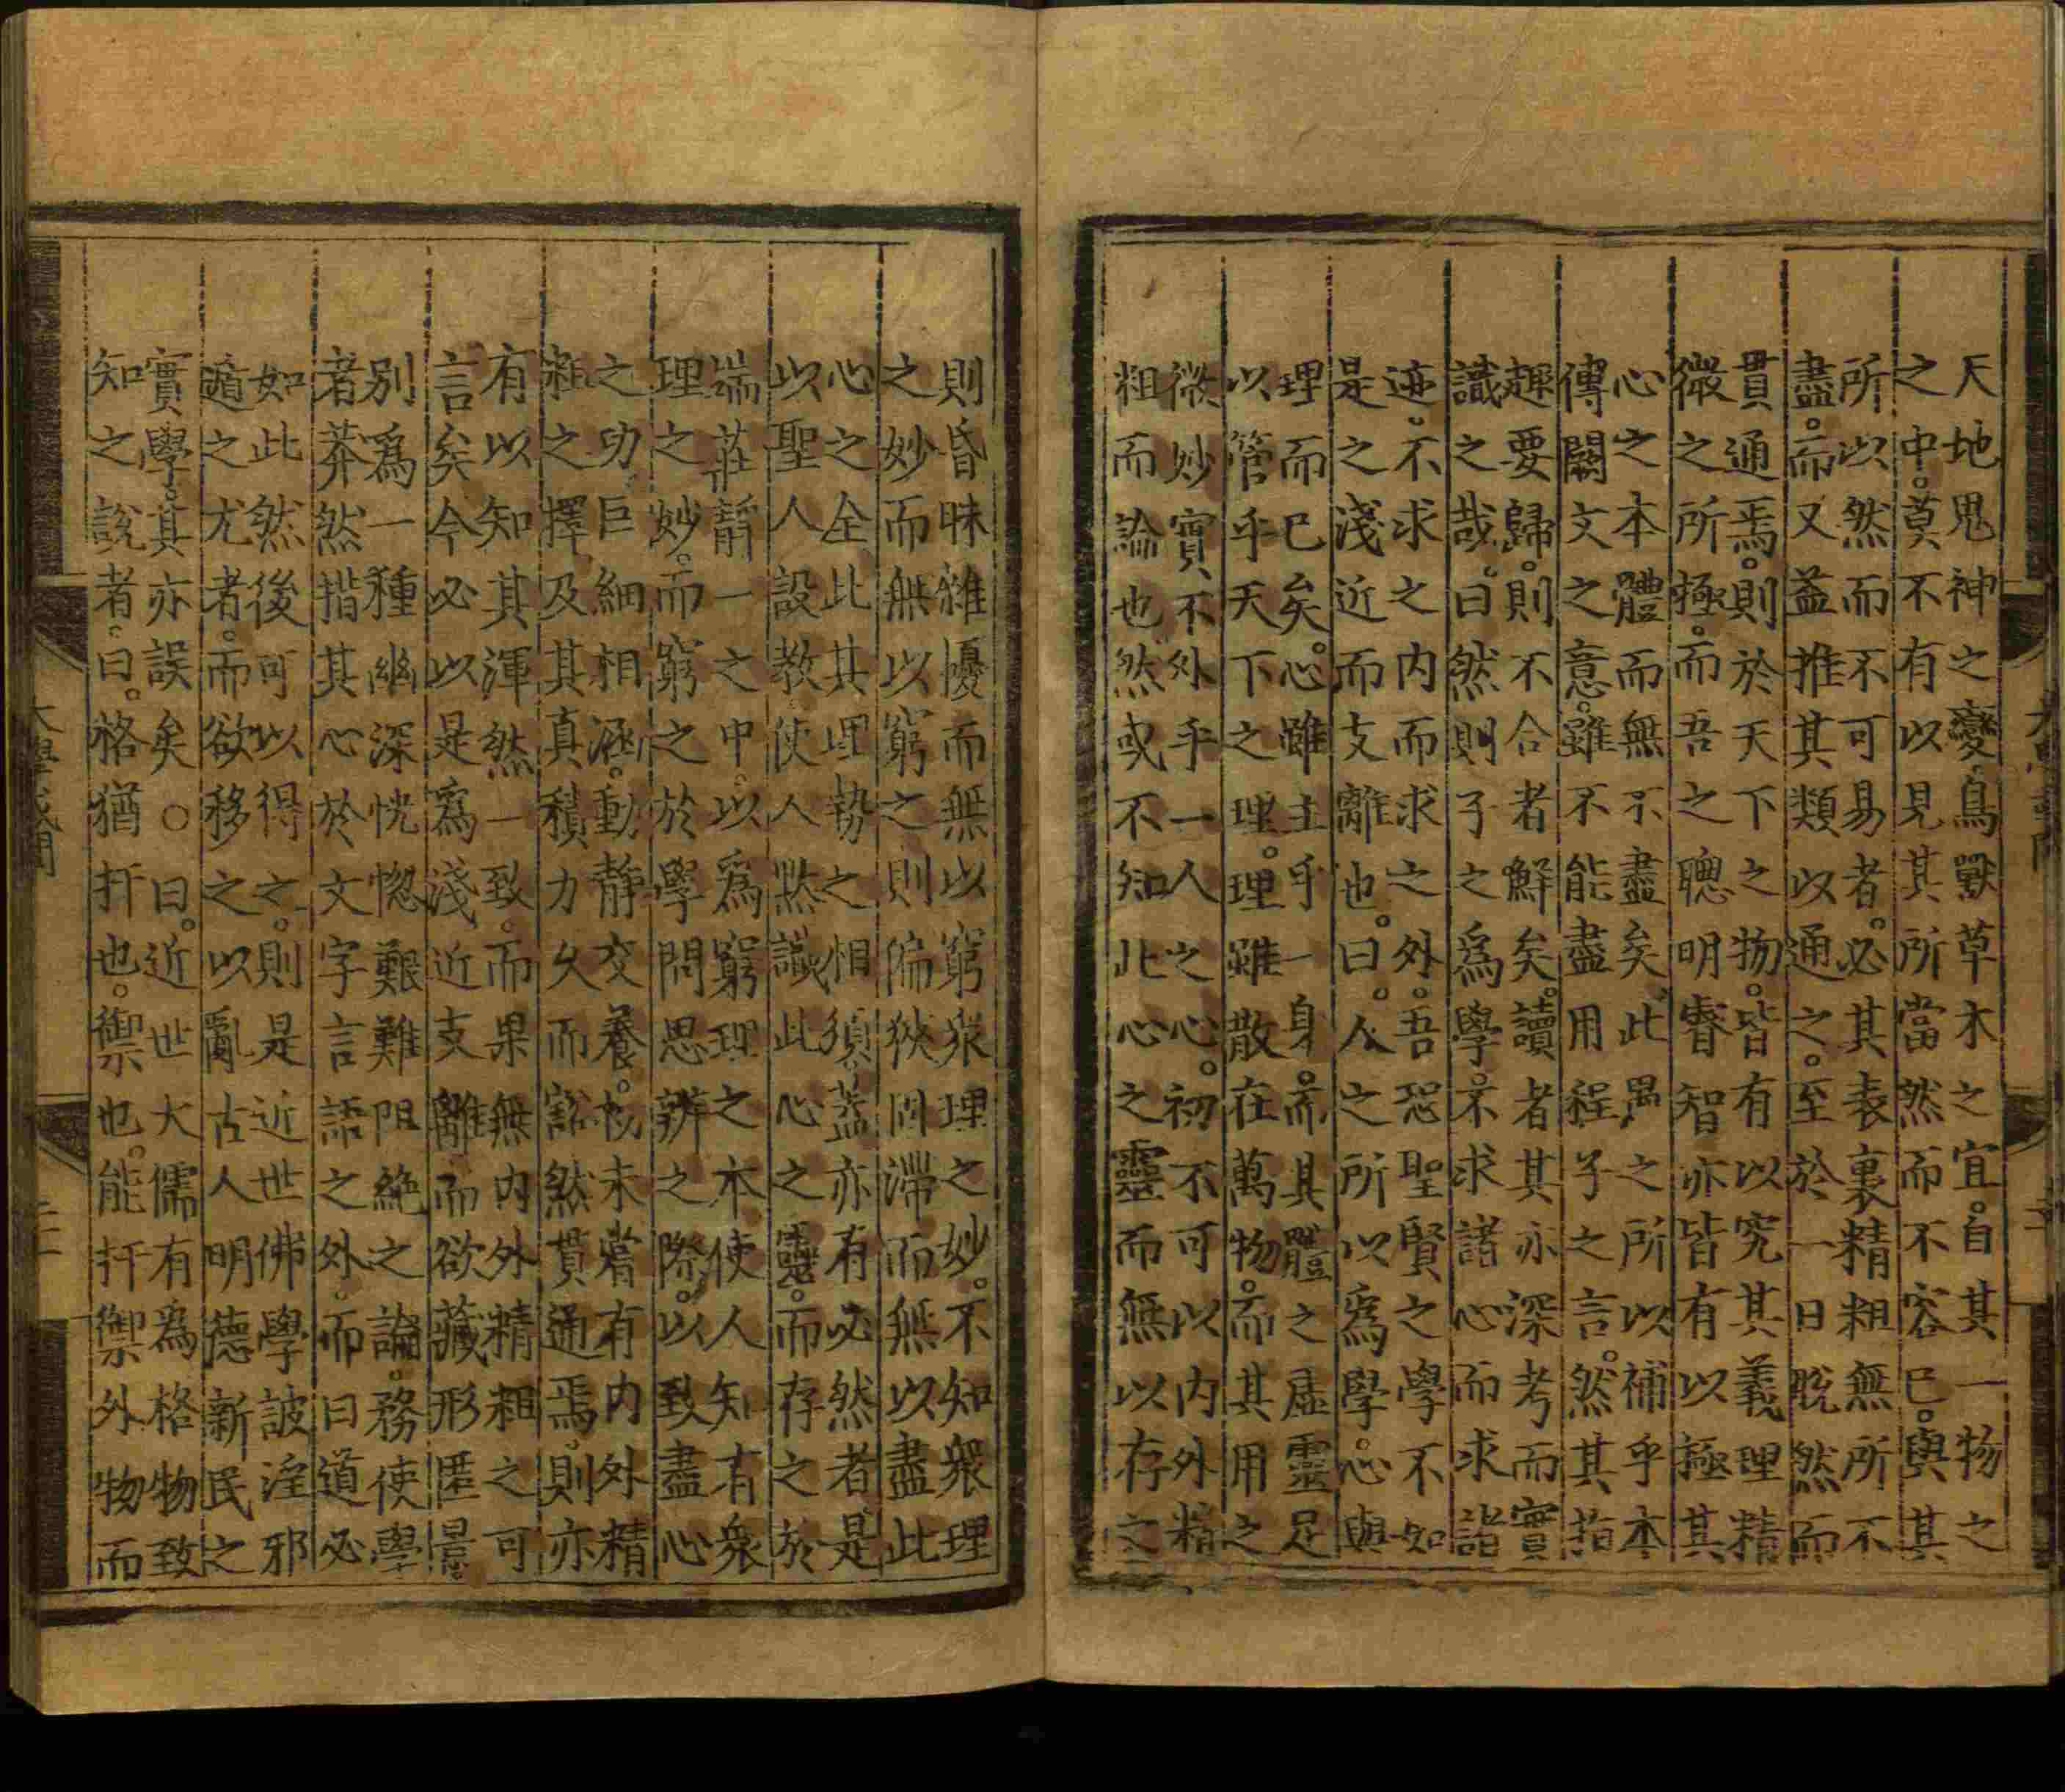 天地鬼神之變。鳥獸草木之宜。自其一物之
之中。莫不有以見其所當然而不容已。與其
所以然而不可易者。必其表裏精粗無所不
盡。而又益推其類以通之。至於一日脫然而
貫通焉。則於天下之物。皆有以究其義理精
微之所極。而吾之聰明睿智亦皆有以極其
心之本體而無不盡矣。此愚之所以補乎本
傳闕文之意。雖不能盡用程子之言。然其指
趣要歸。則不合者鮮矣。讀者其亦深考而實
識之哉。曰然則子之爲學。不求諸心而求諸
迹。不求之内而求之外。吾恐聖賢之學不如
是之淺近而支離也。曰。人之所以爲學。心與
理而已矣。心雖主乎一身。而其體之虛靈足
以管乎天下之理。理雖散在萬物。而其用之
微妙實不外乎一人之心。初不可以内外精
粗而論也然或不知此心之靈而無以存之
則昏昧雜擾而無以窮衆理之妙。不知衆理
之妙而無以窮之則偏狹固滯而無以盡此
心之全此其理勢之相須。蓋亦有必然者。是
以聖人設教使人黙識此心之靈。而存之於
端莊靜一之中。以爲窮理之本使人知有衆
理之妙。而窮之於學問思辨之際。以致盡心
之功。巨細相涵。動靜交養。初未嘗有内外精
粗之擇及其真積力久而豁然貫通焉。則亦
有以知其渾然一致。而果無内外精粗之可
言矣今必以是爲淺近支離而欲藏形匿景
別爲一種幽深恍惚艱難阻絶之論。務使學
者莽然揩其心於文字言語之外。而曰道必
如此然後可以得之。則是近世佛學詖淫邪
遁之尤者。而欲移之以亂古人明德新民之
實學。其亦誤矣〇曰。近世大儒有爲格物致
知之說者。曰。格猶扞也。禦也。能扞禦外物而
大學或問